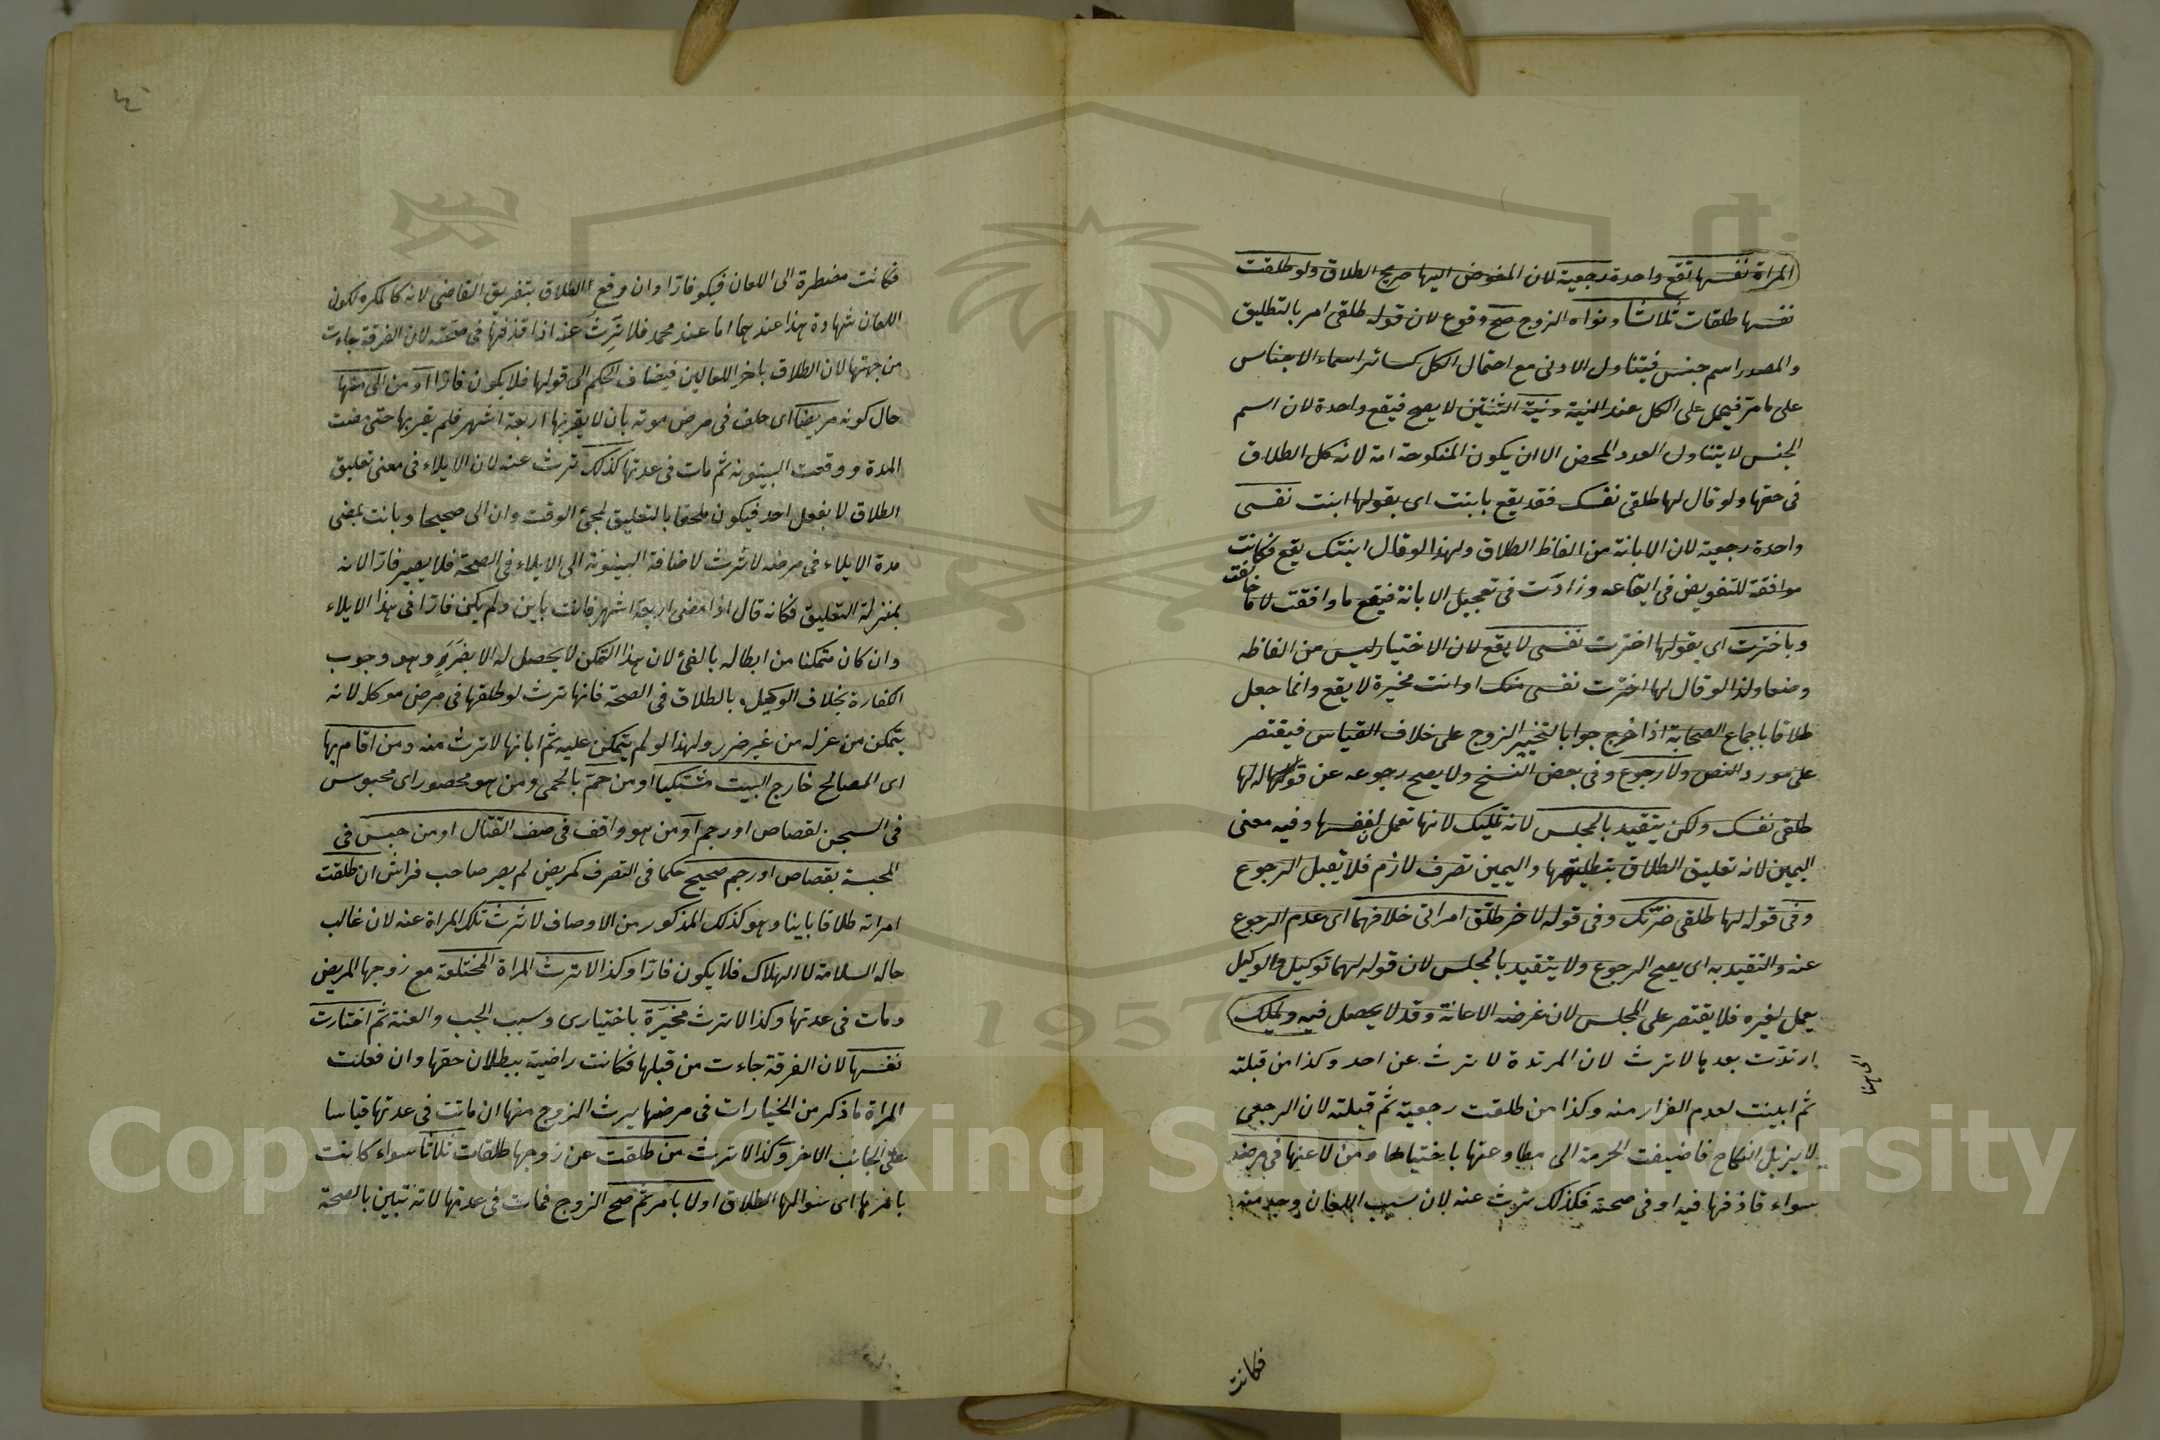 المراة نفسها تقع واحدة رجعية لان المفوض اليها صريح الطلاق ولو طلقت
نفسها طلقات ثلاثا ونواه الزوج صح وقوع لان قوله طلقى امر بالتطليق
والمصدر اسم جنس فيتناول الادنى مع احتمال الكل كسائر اسماء الاجناس
على ما مر فيحمل على الكل عند النية ونية الثنتين لا يصح فيقع واحدة لان اسم
الجنس لا يتناول العدد المحض الا ان يكون المنكوحة امة لانه كل الطلاق
فى حقها ولو قال لها طلقى نفسك فقد يقع بابنت اى بقولها ابنت نفسى
واحدة رجعية لان الابانة من الفاظ الطلاق ولهذا لو قال ابنتك يقع فكانت
موافقة للتفويض فى ايقاعه وزادت فى تعجيل الابانة فيقع ما وافقت لا ما خالفت
وباخترت اى بقولها اخترت نفسى لا يقع لان الاختيار ليس من الفاظه
وضعا ولذا لو قال لها اخترت نفسى منك او انت مخيرة لا يقع وانما جعل
طلاقا باجماع الصحابة اذا خرج جوابا لتخيير الزوج على خلاف القياس فيقتصر
على مورد النص ولا رجوع وفى بعض النسخ ولا يصح رجوعه عن قوله لها
طلقى نفسك ولكن يتقيد بالمجلس لانه تمليك لانها تعمل لنفسها وفيه معنى
اليمين لانه تعليق الطلاق بتطليقها واليمين تصرف لازم فلا تقبل الرجوع
وفى قوله لها طلقى ضرتك وفى قوله لاخر طلق امراتى خلافهما اى عدم الرجوع
عنه والتقيد به اى يصح الرجوع ولا يتقيد بالمجلس لان قوله لهما توكيل والوكيل
يعمل لغيره فلا يقتصر على المجلس لان غرضه الاعانة وقد لا يحصل فيه وتمليك
ارتدت بعدها لا ترث لان المرتدة لا ترث عن احد وكذا من قبلته
ثم ابينت لعدم الفرار منه وكذا من طلقت رجعية ثم قبلته لان الرجعى
لا يزيل النكاح فاضيفت الحرمة الى مطاوعتها باختيارها ومن لاعنها فى مرضه
سواء قاذفها فيه او فى صحته فكذلك ترث عنه لان سبب اللعان وجد منه
فكانت
فكانت مضطرة الى اللعان فيكون فارا وان وقع الطلاق بتفريق القاضى لانه كالمكره لكون
اللعان شهادة هذا عندهما اما عند محمد فلا ترث عنه اذا قذفها فى صحته لان الفرقة جاءت
من جهتها لان الطلاق باخر اللعانين فيضاف الحكم الى قولها فلا يكون فارا او من الى منها
حال كونه مريضا اى حلف فى مرض موته بان لا يقربها اربعة اشهر فلم يقربها حتى مضت
المدة ووقعت البينونة ثم مات فى عدتها كذلك ترث عنه لان الايلاء فى معنى تعليق
الطلاق لا بفعل احد فيكون ملحقا بالتعليق لمجئ الوقت وان الى صحيحا وبانت بمضى
مدة الايلاء فى مرضه لا ترث لاضافة البينونة الى الايلاء فى الصحة فلا يصير فارا لانه
بمنزلة التعليق فكانه قال اذا مضى اربعة اشهر فانت باين ولم يكن فارا فى هذا الايلاء
وان كان متمكنا من ابطاله بالفئ لان هذا التمكن لا يحصل له الا بضرر وهو وجوب
الكفارة بخلاف الوكيل بالطلاق فى الصحة فانها ترث لو طلقها فى مرض موكله لانه
يتمكن من عزله من غير ضرر ولهذا لو لم يتمكن عليه ثم ابانها لا ترث منه ومن اقام بها
اى المصالح خارج البيت مشتكيا او من حم بالحمى ومن هو محصور اى محبوس
فى السجن لقصاص او رجم او من هو واقف فى صف القتال او من حبس فى
المحبسة بقصاص او رجم صحيح حكما فى التصرف كمريض لم يصر صاحب فراش ان طلقت
امراته طلاقا باينا وهو كذلك المذكور من الاوصاف لا ترث تلك المراة عنه لان غالب
حاله السلامة لا الهلاك فلا يكون فارا وكذا لا ترث المراة المختلعة مع زوجها المريض
ومات فى عدتها وكذا لا ترث مخيرة باختيارى وسبب الجب والعنة ثم اختارت
نفسها لان الفرقة جاءت من قبلها فكانت راضية ببطلان حقها وان فعلت
المراة ما ذكر من الخيارات فى مرضها يرث الزوج منها ان ماتت فى عدتها قياسا
على الجانب الاخر وكذا لا ترث من طلقت عن زوجها طلقات ثلاثا سواء كانت
بامرها اى سؤالها الطلاق او لا بامر ثم صح الزوج فمات فى عدتها لانه تبين بالصحة